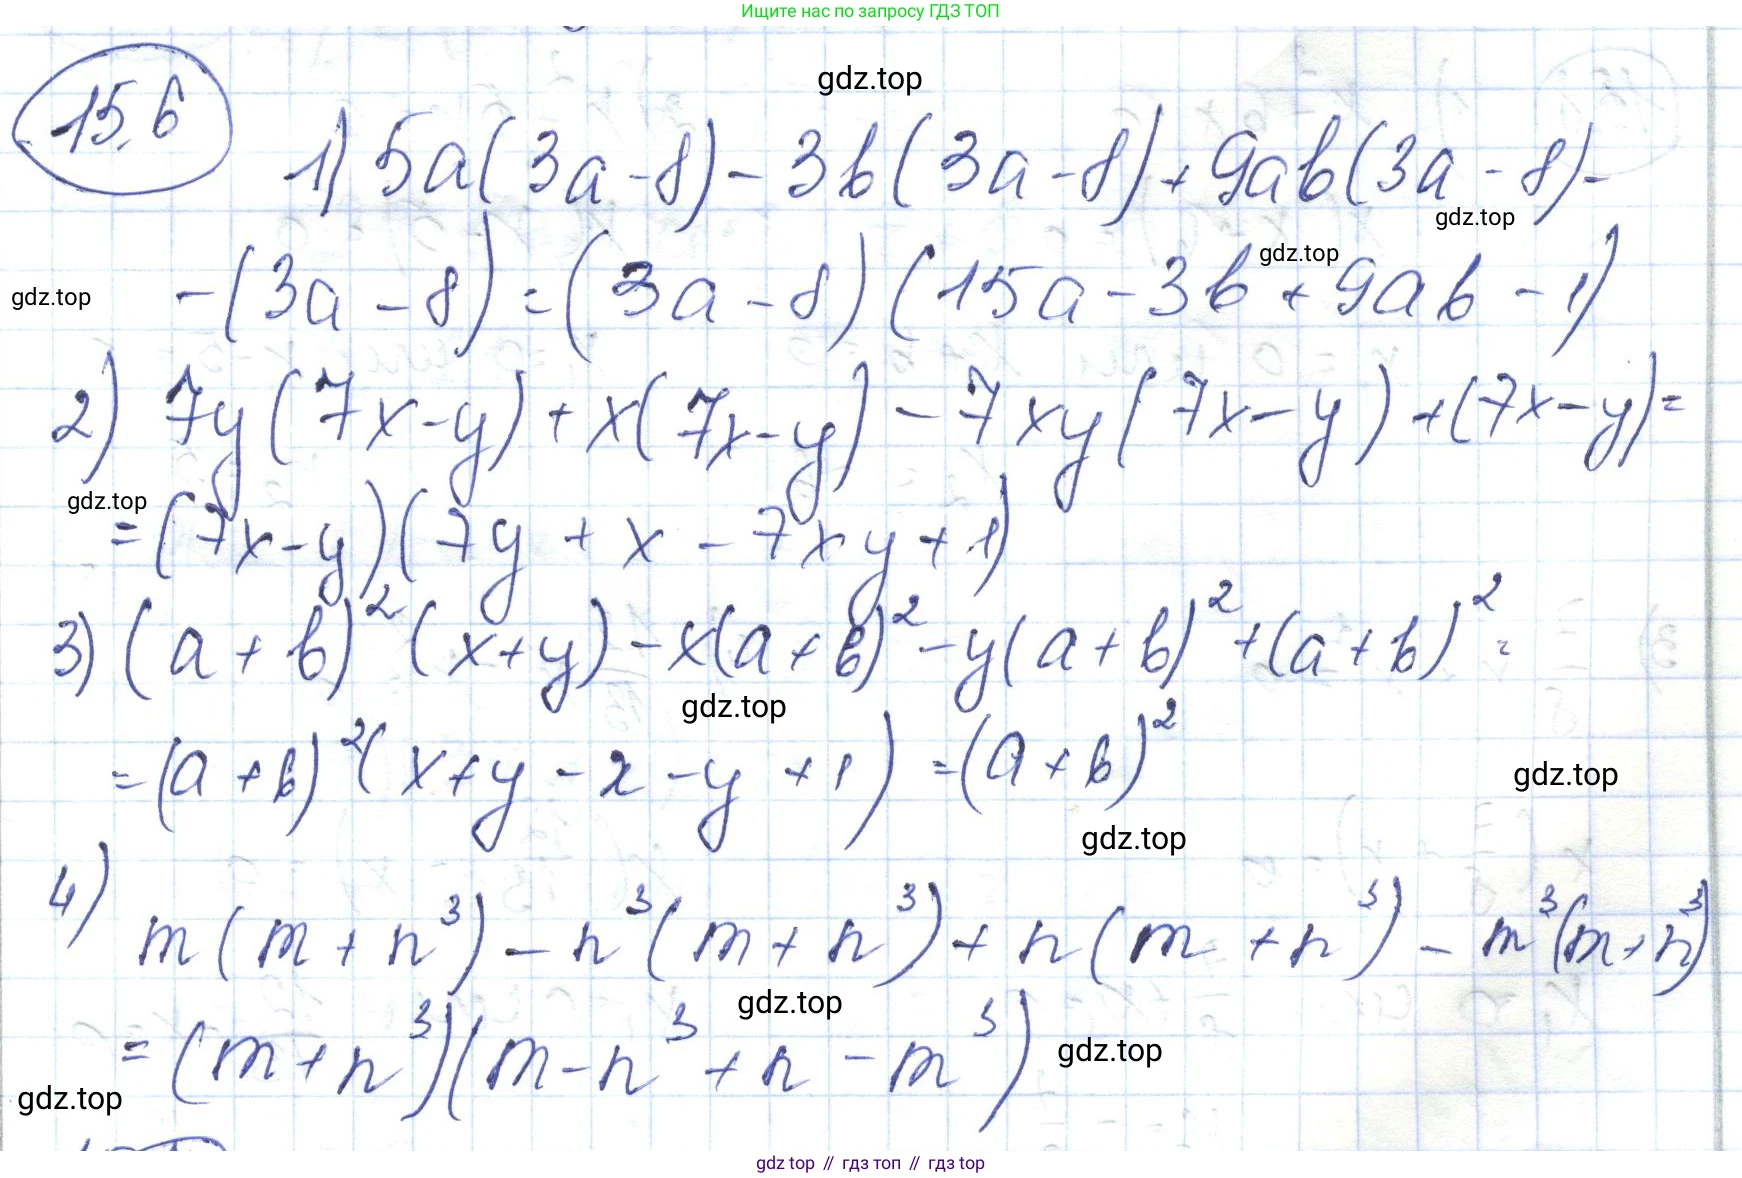 Ищите нас по запросу ГДЗ ТОП
15.6
gdz.top
1) 5a(3a-8) - 3b(3a-8) + 9ab(3a-8) -
gdz.top
gdz.top
gdz.top
-(3a-8) = (3a-8)(15a-3b+9ab-1)
2) 7y(7x-y) + x(7x-y) - 7xy(7x-y) + (7x-y) =
gdz.top
= (7x-y)(7y + x - 7xy + 1)
3) (a+b)² (x+y) - x(a+b)² - y(a+b)² + (a+b)² =
gdz.top
= (a+b)² (x+y-x-y+1) = (a+b)²
gdz.top
gdz.top
4)
m(m+n³) - n³(m+n³) + n(m+n³) - m³(m+n³)
gdz.top
= (m+n³)(m-n³+n-m³)
gdz.top
gdz.top
gdz top // гдз топ // гдз top